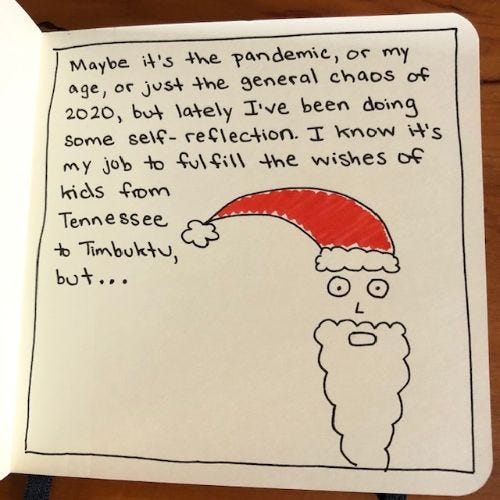 Maybe it's the pandemic, or my
age, or just the general chaos of
2020, but lately I've been doing
some self-reflection. I know it's
my job to fulfill the wishes of
kids from
Tennessee
to Timbuktu,
but...